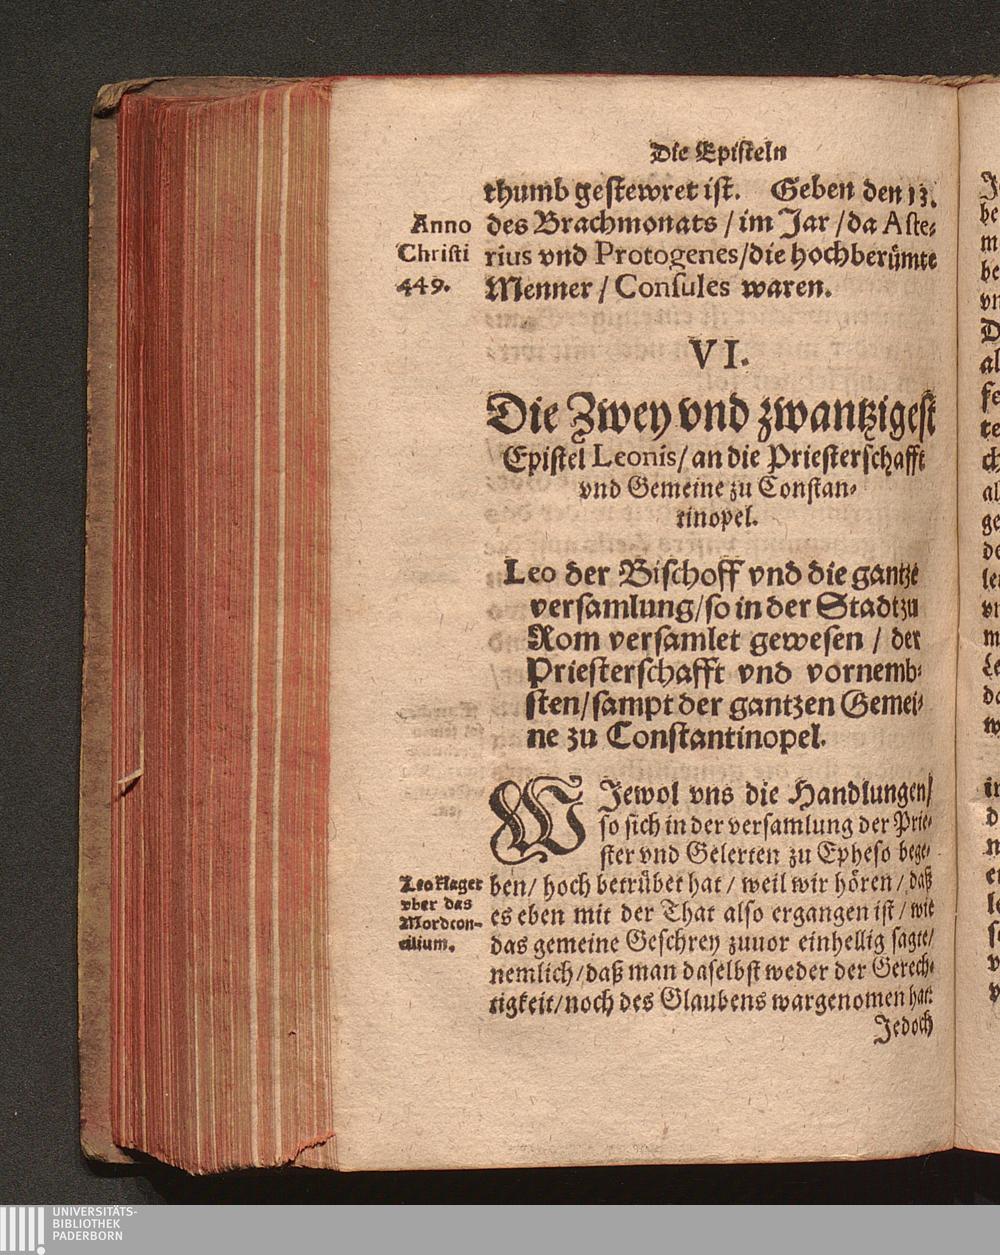 Die Epiſteln
thumb geſtewret iſt. Geben den 13.
Anno
Chriſti
449.
des Brachmonats / im Jar / da Aſte⸗
rius vnd Protogenes/die hochberümte
Menner / Conſules waren.
VI.
Die Zwey vnd zwantzigeſt
Epiſtel Leonis/ an die Prieſterſchafft
vnd Gemeine zu Conſtan⸗
tinopel.
Leo der Biſchoff vnd die gantze
verſamlung/ſo in der Stadt zu
Rom verſamlet geweſen / der
Prieſterſchafft vnd vornemb⸗
ſten/ſampt der gantzen Gemei⸗
ne zu Conſtantinopel.
WJewol vns die Handlungen/
ſo ſich in der verſamlung der Prie⸗
ſter vnd Gelerten zu Epheſo bege⸗
Leo klaget
vber das
Mordcon⸗
cilium.
ben/ hoch betrübet hat / weil wir hören / daß
es eben mit der That alſo ergangen iſt / wie
das gemeine Geſchrey zuuor einhellig ſagte/
nemlich/daß man daſelbſt weder der Gerech⸗
tigkeit/noch des Glaubens wargenomen hat:
Jedoch
UNIVERSITÄTS-
BIBLIOTHEK
PADERBORN